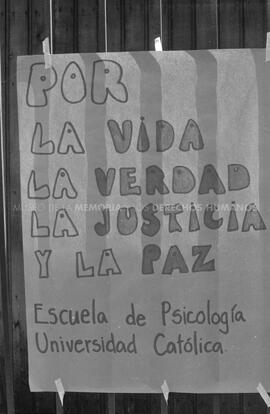 POR
LA VIDA
LA VERDAD
MUSEO DE LA MEMORIA Y LOS DERECHOS HUMANOS
LA JUSTICIA
Y LA PAZ
Escuela de Psicología
Universidad Católica.